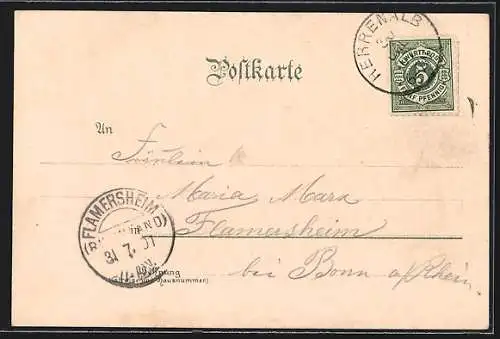 HERRENALB
30
WÜRTTEMB.
5
FÜNF PFENNIG
Postkarte
An
Fräulein
Maria Marx
Flamersheim
bei Bonn a/Rhein
FLAMERSHEIM
(RHEINLAND)
31 7. 01
(Strasse und Hausnummer)